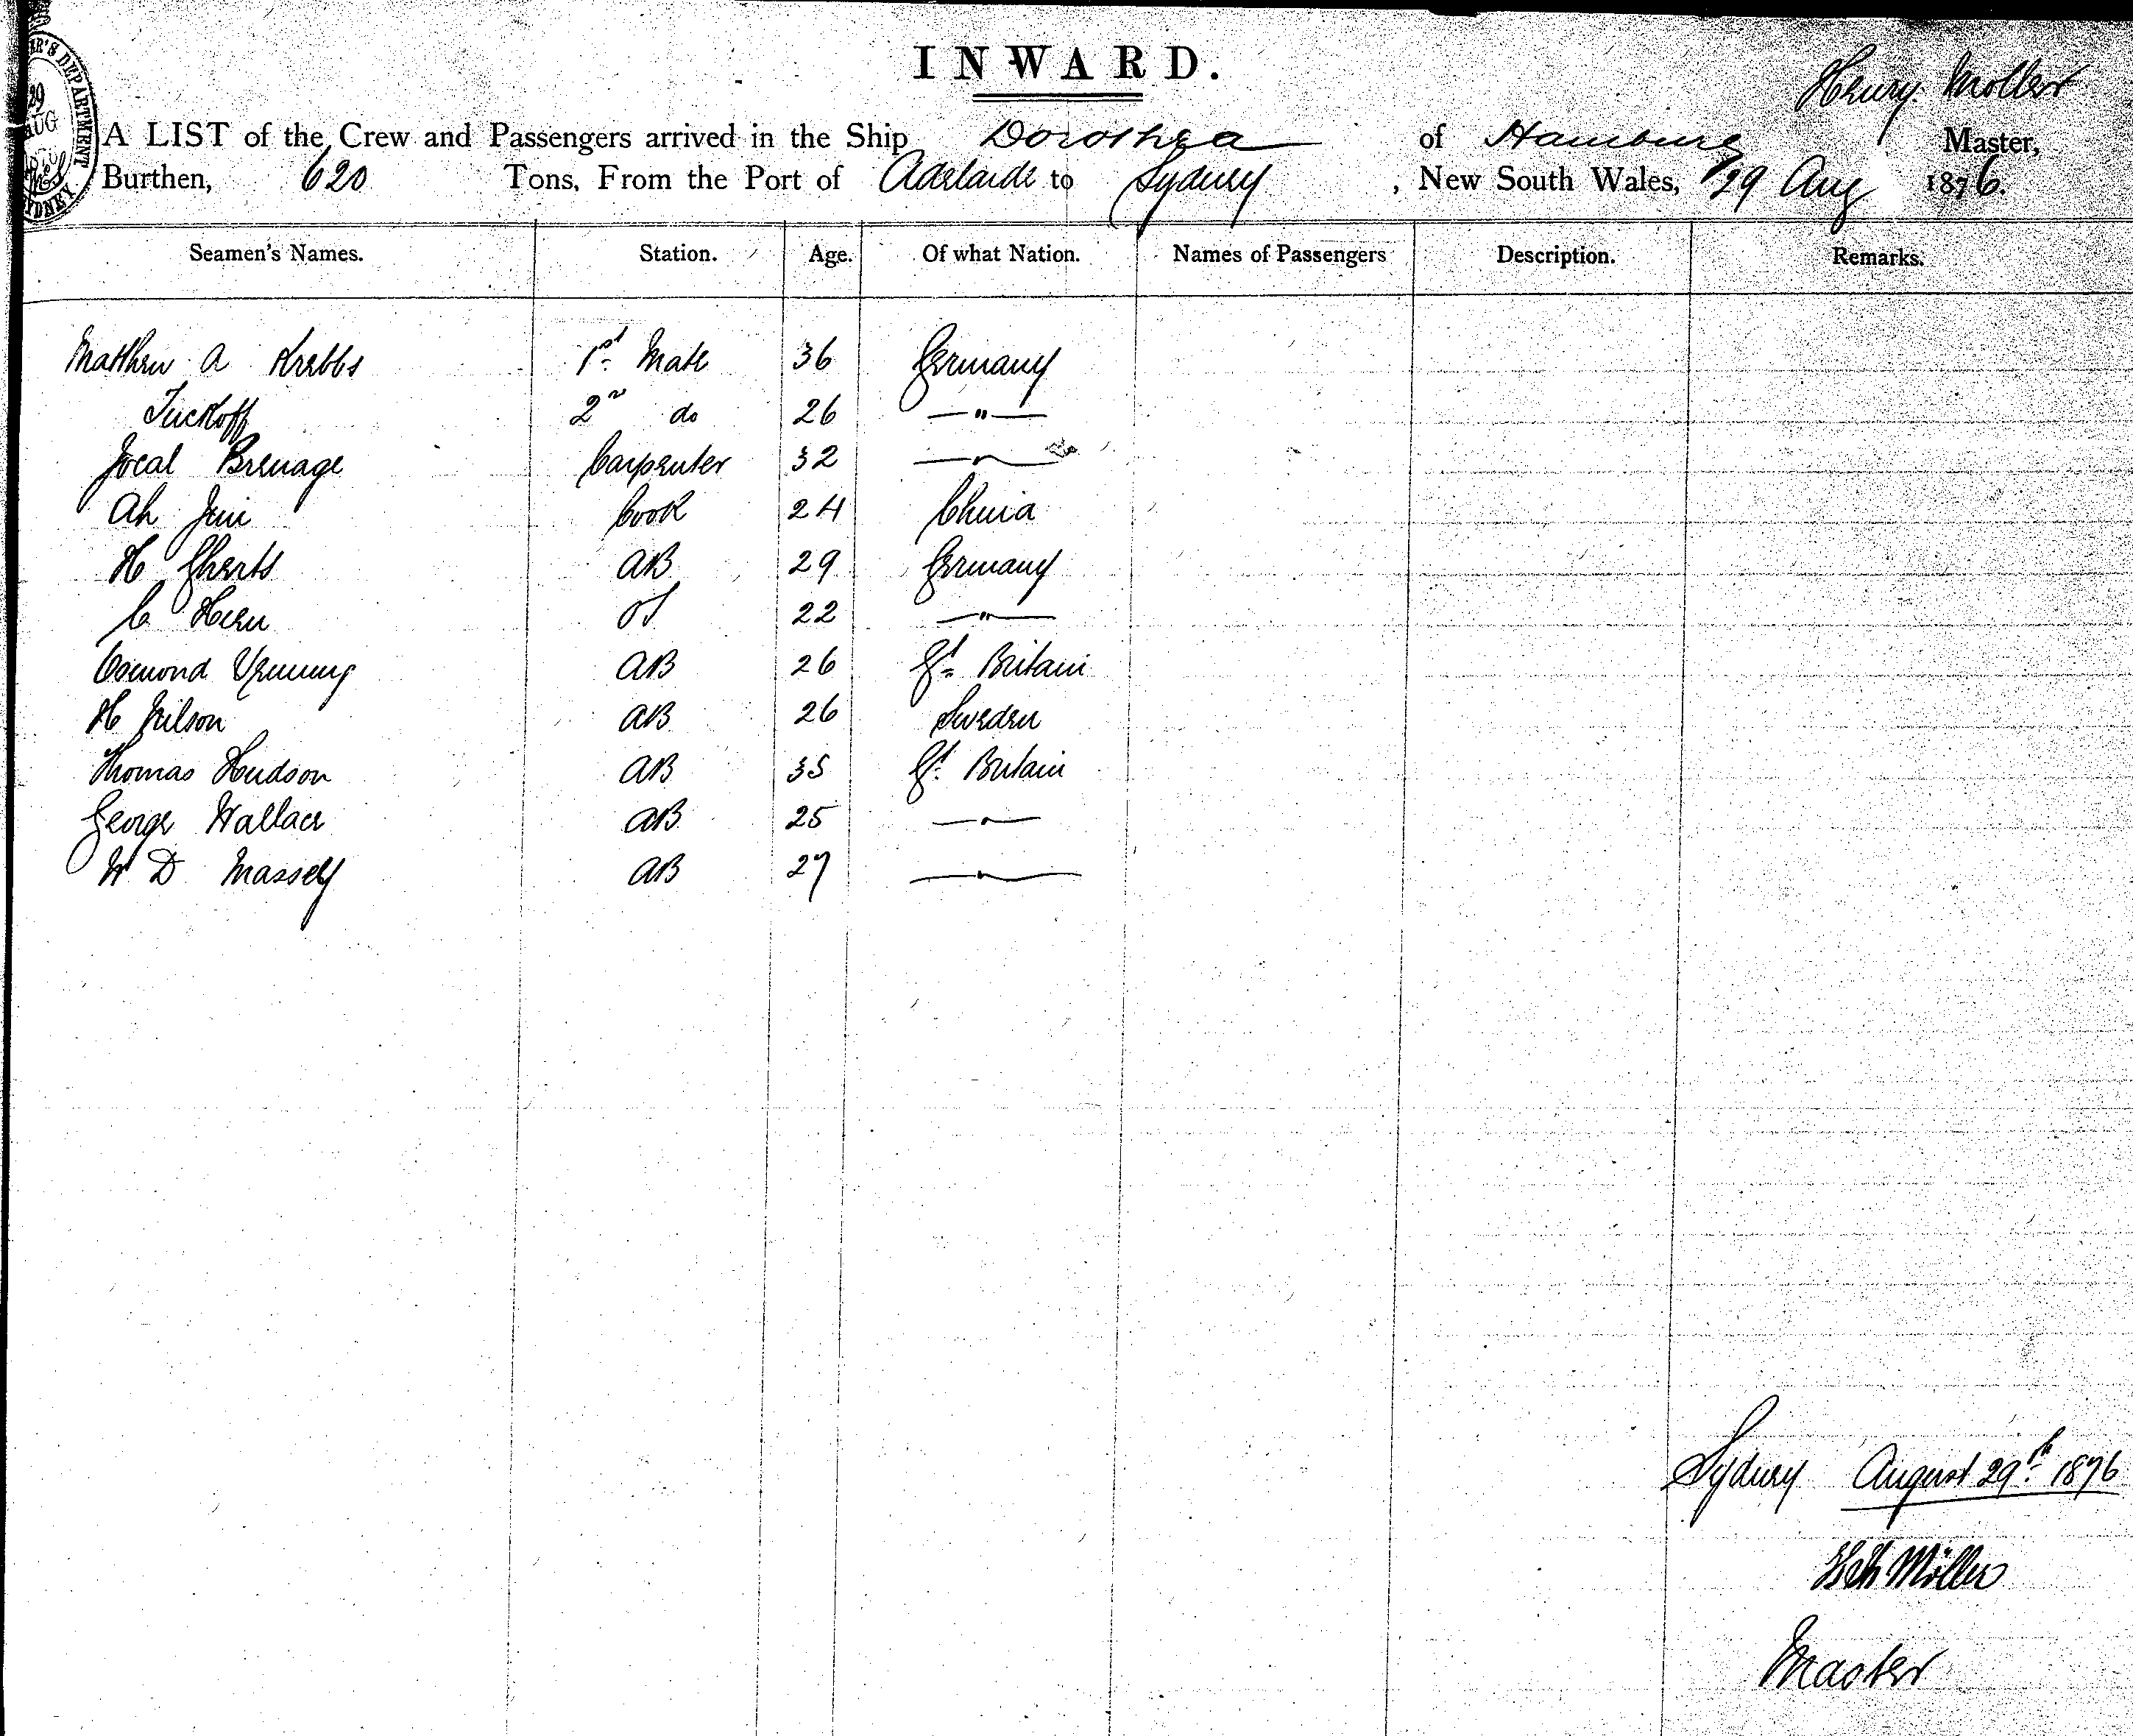 INWARD.
Henry Moller
A LIST of the Crew and Passengers arrived in the Ship Dorothea of Hamburg Master,
Burthen, 620 Tons, From the Port of Adelaide to Sydney, New South Wales, 29 Aug 1876.
29
AUG
SYDNEY
DEPARTMENT
Seamen's Names. Station. Age. Of what Nation. Names of Passengers Description. Remarks.
Matthew A Krebbs 1st Mate 36 Germany
Tuckoff 2n do 26 — " —
Jocal Brenage Carpenter 32 — " —
Ah Jim Cook 24 China
H Gherts AB 29 Germany
C Hern OS 22 — " —
Osmond AB 26 Gt Britain
H Nilson AB 26 Sweden
Thomas Hudson AB 35 Gt Britain
George Wallace AB 25 — " —
W D Massely AB 27 — " —
Sydney August 29th 1876
Möller
Master